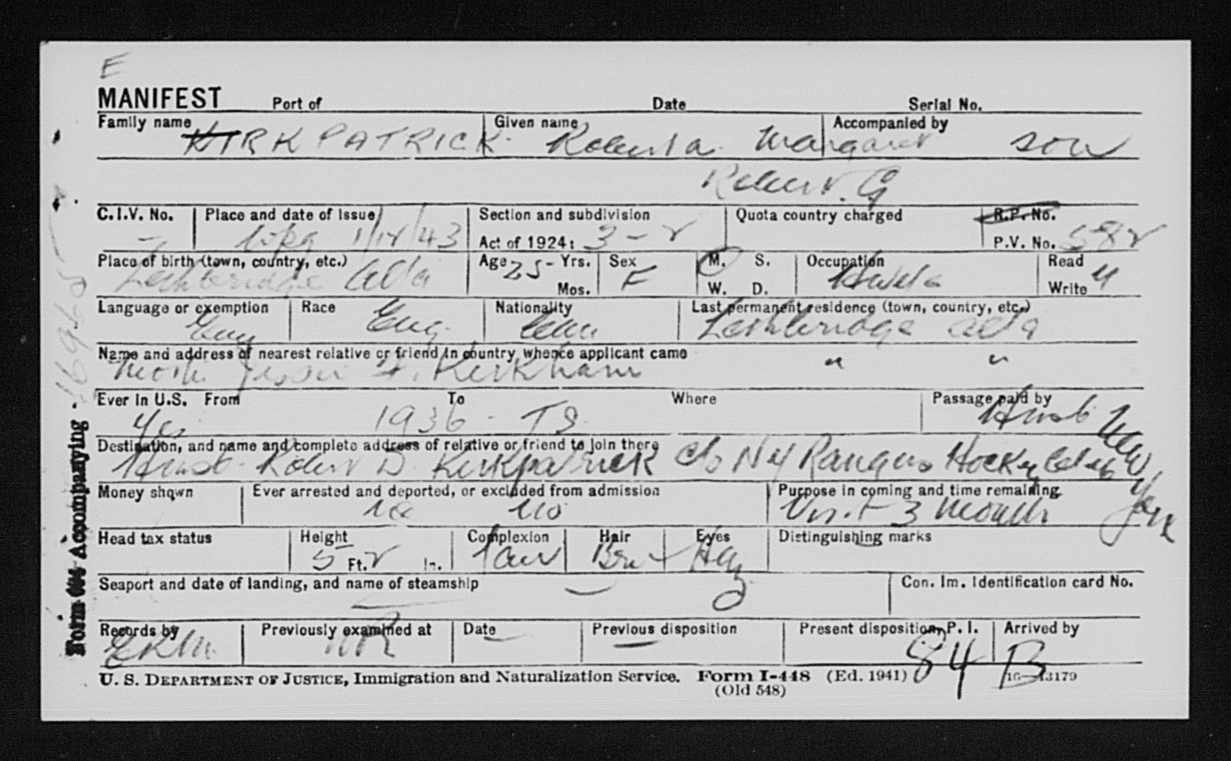 E
MANIFEST Port of Date Serial No.
Family name KIRKPATRICK Given name Roberta Margaret Accompanied by son
Robert G
C.I.V. No. Place and date of issue 1/12/43 Section and subdivision Act of 1924: 3-2 Quota country charged R.P. No. P.V. No. 582
Place of birth (town, country, etc.) Lethbridge Alta Age 25 Yrs. Mos. Sex F M. S. W. D. Occupation Hwife Read Write
Language or exemption Eng Race Eng. Nationality Last permanent residence (town, country, etc.) Lethbridge Alta
Name and address of nearest relative or friend in country whence applicant came " "
Moth. Kirkham
Ever in U.S. From To Where Passage paid by
Yes 1936 - TS. Husb
Destination, and name and complete address of relative or friend to join there
Husb. Robert D. Kirkpatrick c/o NY Rangers Hockey Club New York
Money shown Ever arrested and deported, or excluded from admission no Purpose in coming and time remaining Visit 3 months
Head tax status Height 5 Ft. 2 In. Complexion fair Hair Brn Eyes Haz Distinguishing marks
Seaport and date of landing, and name of steamship Con. Im. Identification card No.
Records by Previously examined at NR Date — Previous disposition — Present disposition, P. I. 84 Arrived by B
U. S. DEPARTMENT OF JUSTICE, Immigration and Naturalization Service. Form I-448 (Ed. 1941) 16—13179
(Old 548)
Accompanying